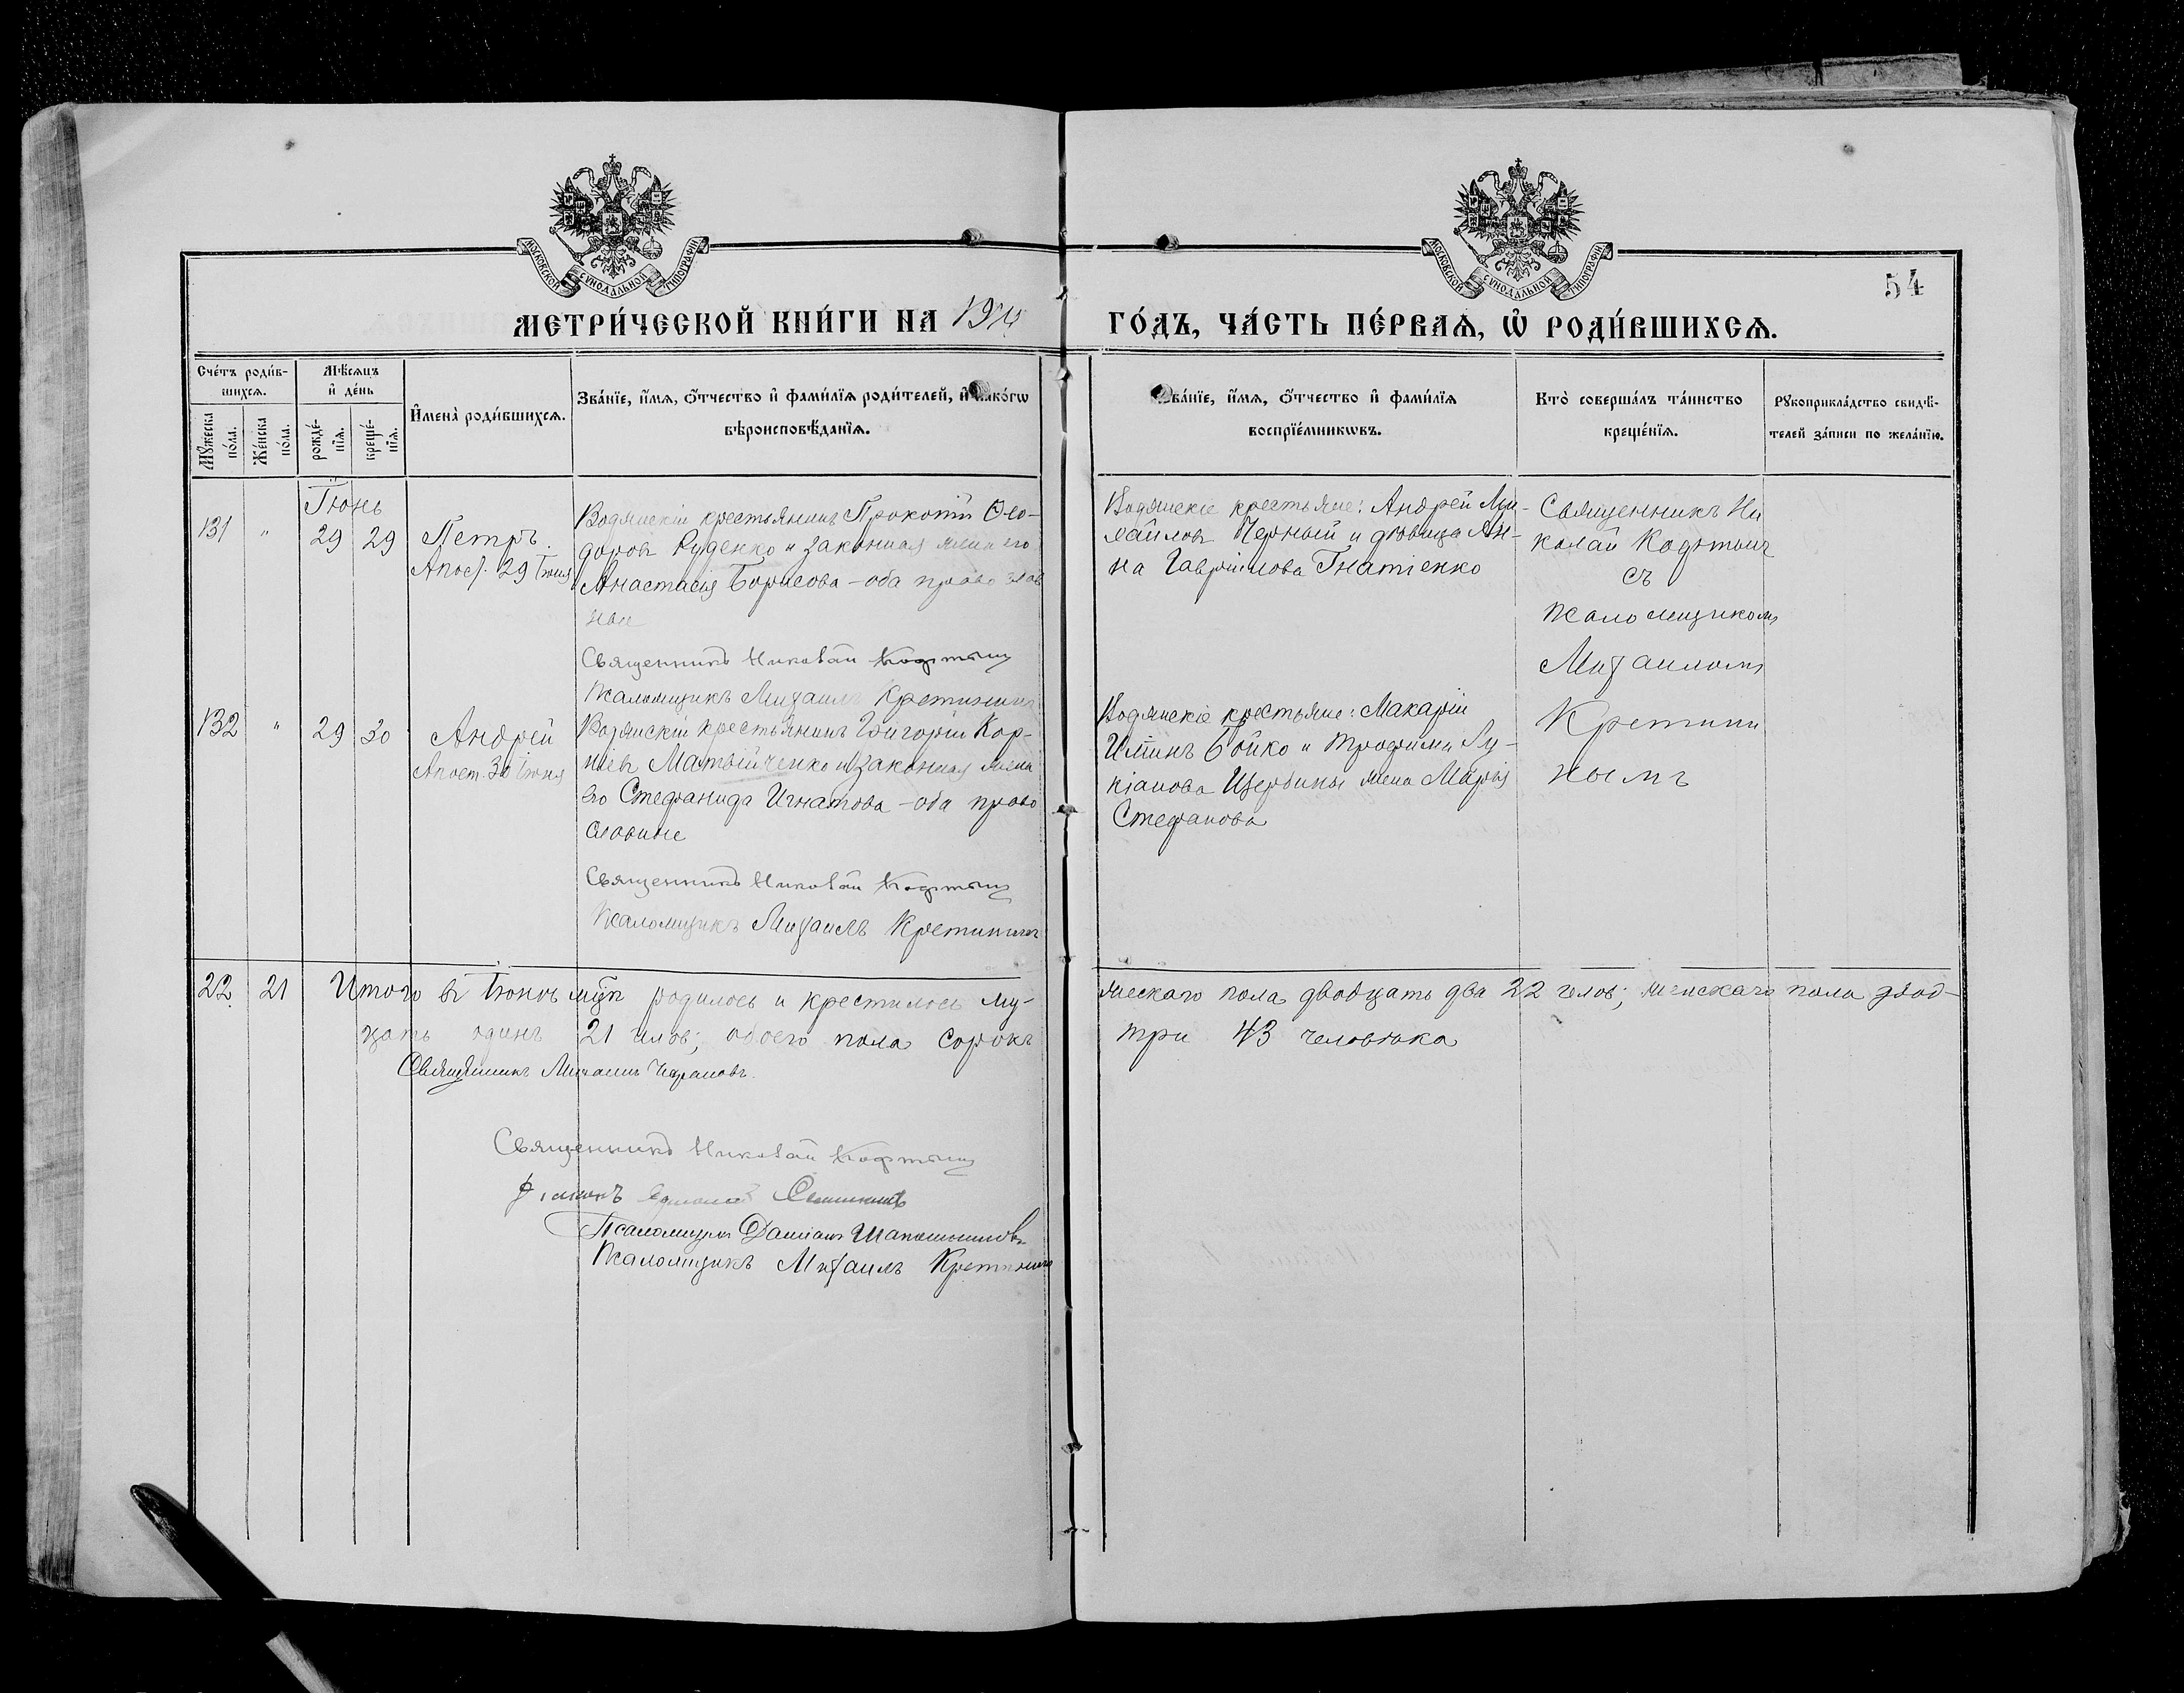 МОСКОВСКОЙ СѴНОДАЛЬНОЙ ТИПОГРАФІИ
МОСКОВСКОЙ СѴНОДАЛЬНОЙ ТИПОГРАФІИ
54
МЕТРИ́ЧЕСКОЙ КНИ́ГИ НА 1914 ГО́ДЪ, ЧА́СТЬ ПЕ́РВАѦ, Ѡ҆ РОДИ́ВШИХСѦ.
Сче́тъ роди́в-
шихсѧ.
Мꙋ́жеска по́ла.
Же́нска по́ла.
Мѣ́сѧцъ
и҆ де́нь
рожде́-нїѧ.
креще́-нїѧ.
И҆мена̀ роди́вшихсѧ.
Зва́нїе, и҆́мѧ, ѻ҆́тчество и҆ фами́лїѧ роди́телей, и҆ како́гѡ
вѣроисповѣ́данїѧ.
Зва́нїе, и҆́мѧ, ѻ҆́тчество и҆ фами́лїѧ
воспрїе́мникѡвъ.
Кто̀ соверша́лъ та́инство
креще́нїѧ.
Рꙋкоприкла́дство свидѣ́-
телей за́писи по жела́нїю.
Іюнь
131 " 29 29 Петръ.
Апост. 29 Іюня
Водянскій крестьянинъ Прокопій Ѳео-
доровъ Руденко и законная жена его
Анастасія Борисова - оба православ
ные
Священникъ Николай Кофтыщ
Псаломщикъ Михаилъ Кретининъ
Водянскіе крестьяне: Андрей Ми-
хайловъ Черный и дѣвица Ан-
на Гавріилова Гнатенко
Священникъ Ни
колай
съ
псаломщикомъ
Михаиломъ
Кретини
нымъ
132 " 29 30 Андрей
Апост. 30 Іюня
Водянскій крестьянинъ Григорій Кор-
ніевъ Матвійченко и законная жена
его Стефанида Игнатова - оба право
славные
Священникъ Николай Кофтыщ
Псаломщикъ Михаилъ Кретининъ
Водянскіе крестьяне: Макарій
Ильинъ Бойко и Трофима Лу-
кіанова Щербины жена Марія
Стефанова
22 21 Итого въ Іюнѣ мцѣ родилось и крестилось му-жескаго пола двадцать два 22 челов; женскаго пола двад-
цать одинъ 21 челов; обоего пола сорокъ три 43 человѣка
Священникъ Михаилъ
Священникъ Николай Кофтыщ
Псаломщикъ Даміанъ Шапошниковъ
Псаломщикъ Михаилъ Кретининъ